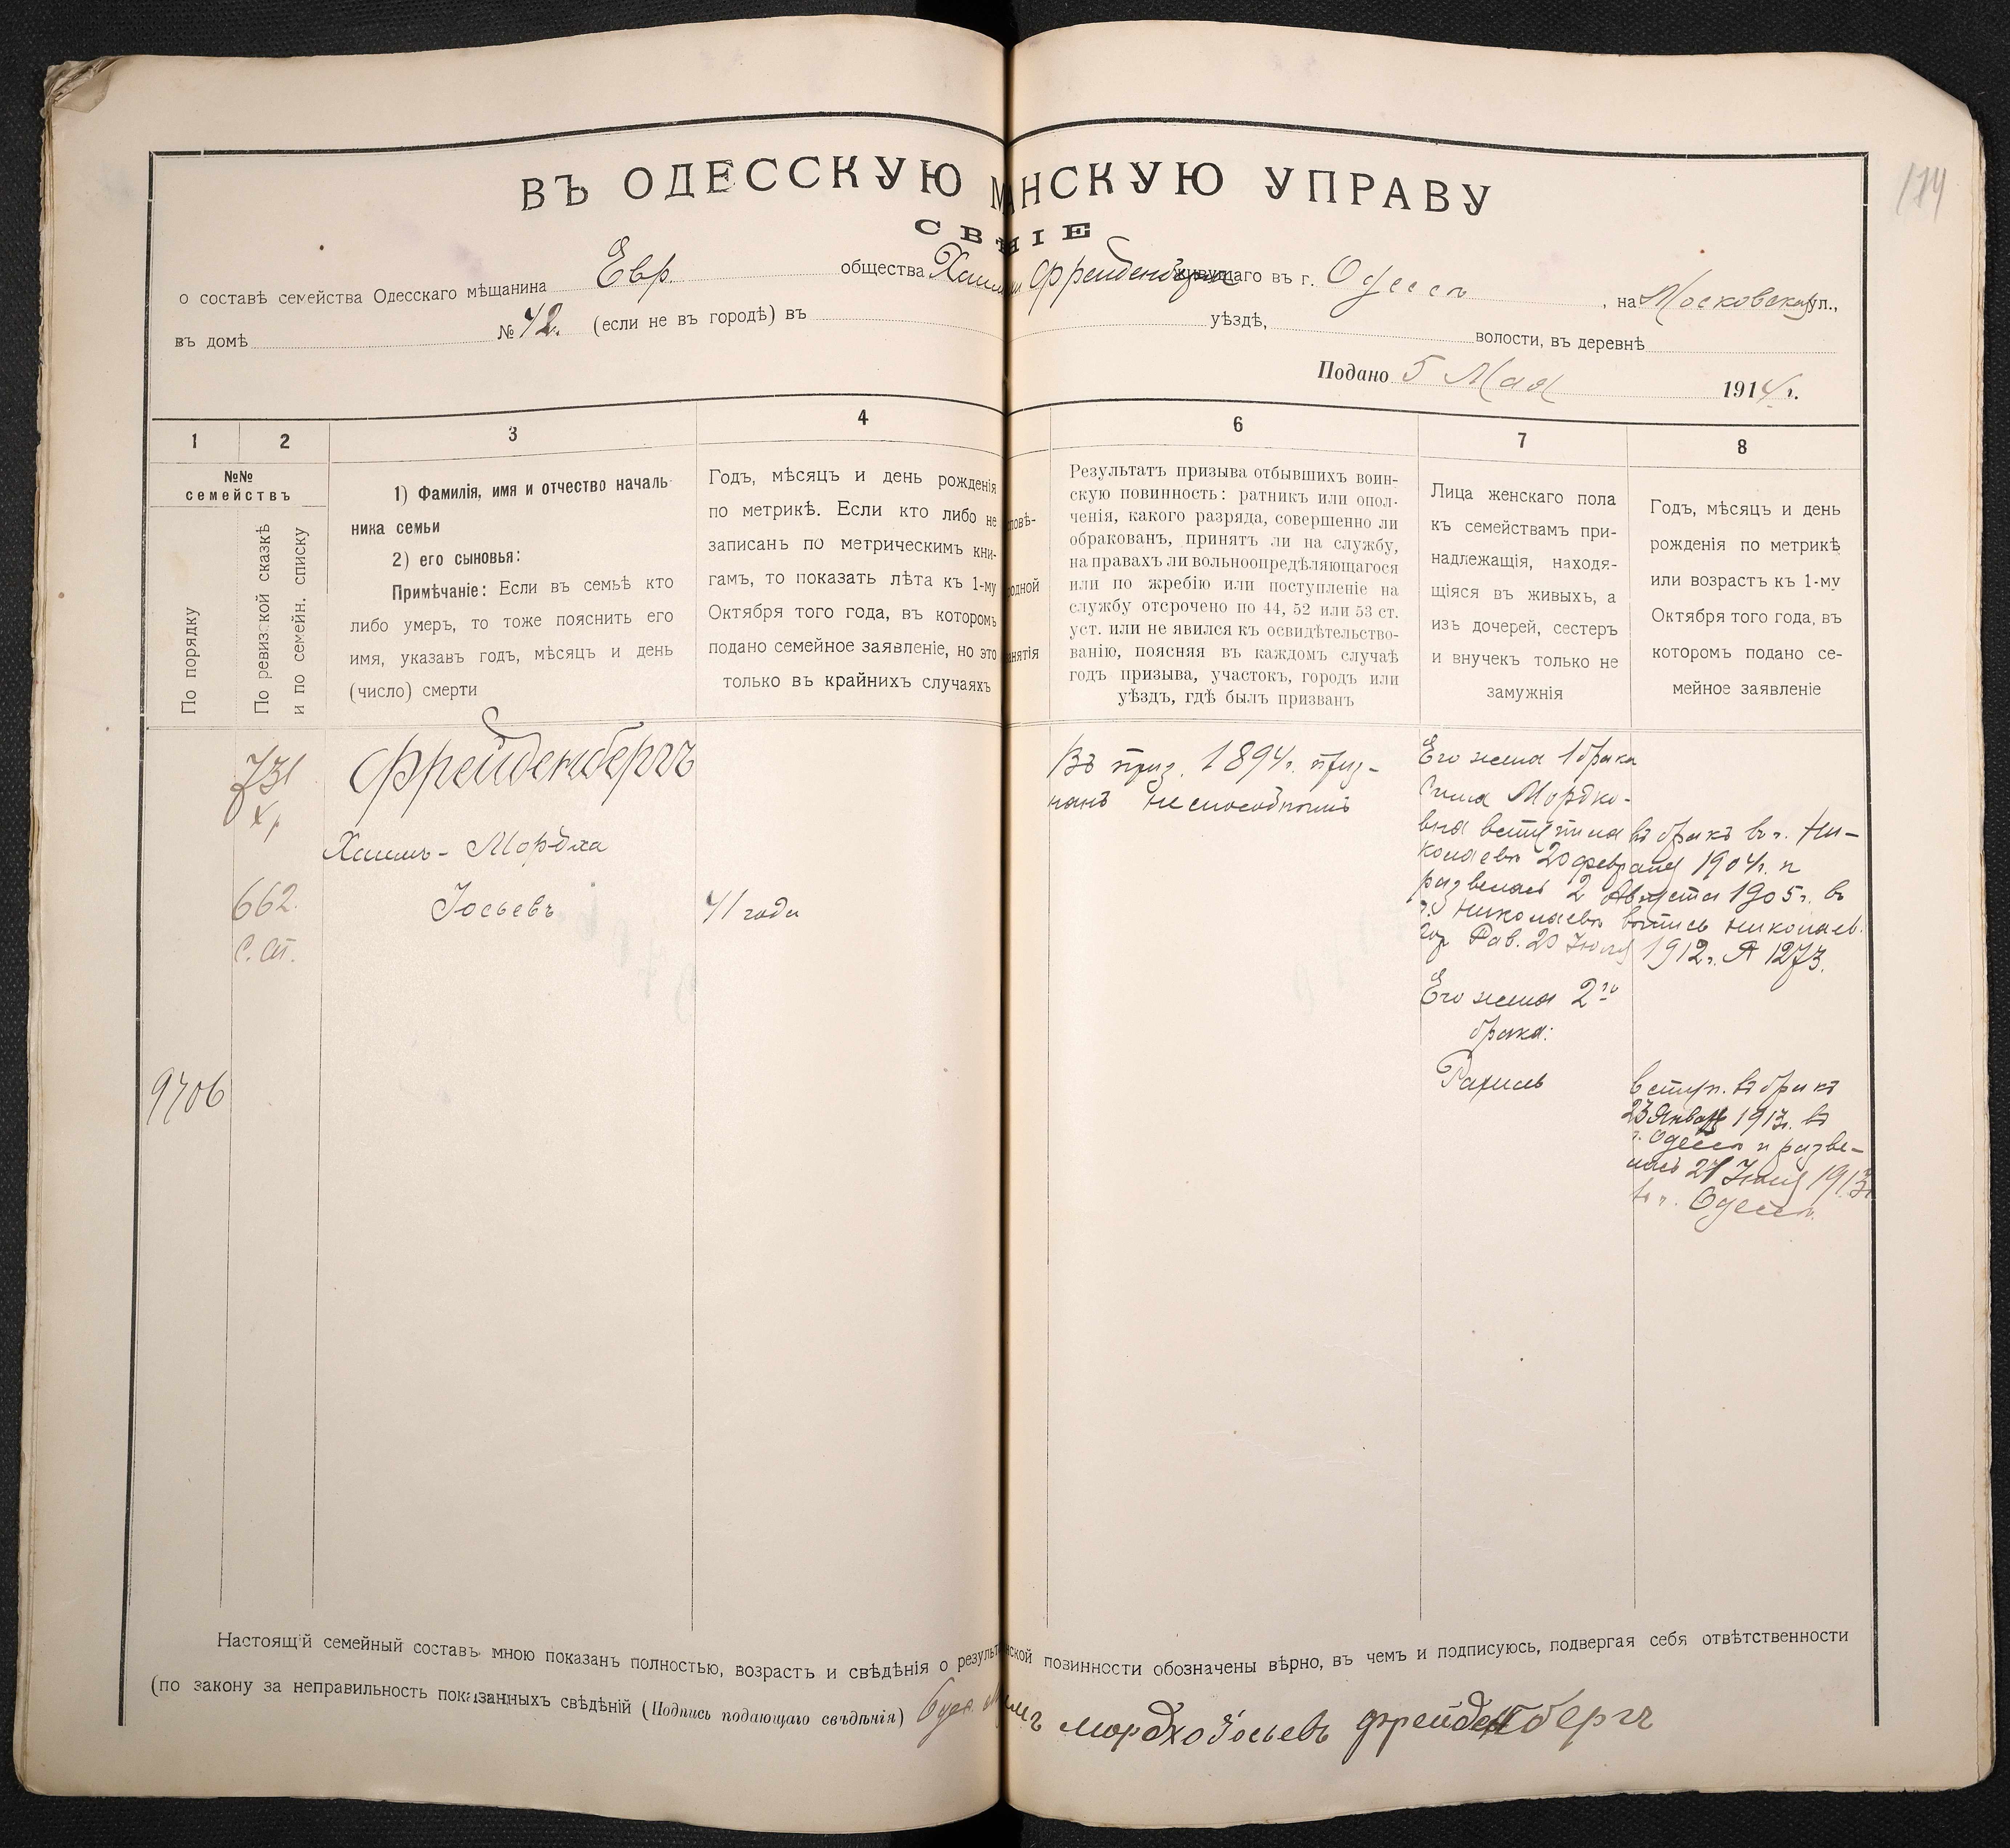 174
ВЪ ОДЕССКУЮ М НСКУЮ УПРАВУ
СВѢ НІЕ
о составѣ семейства Одесскаго мѣщанина Евр. общества Хаима Фрейденберга живущаго въ г. Одессѣ, на Московской ул.,
въ домѣ № 42. (если не въ городѣ) въ уѣздѣ, волости, въ деревнѣ
Подано 5 Мая 1914 г.
1 2 3 4 6 7 8
№№
семействъ
По порядку
По ревизской сказкѣ
и по семейн. списку
1) Фамилія, имя и отчество началь-
ника семьи
2) его сыновья:
Примѣчаніе: Если въ семьѣ кто
либо умеръ, то тоже пояснить его
имя, указавъ годъ, мѣсяцъ и день
(число) смерти
Годъ, мѣсяцъ и день рожденія
по метрикѣ. Если кто либо не
записанъ по метрическимъ кни-
гамъ, то показать лѣта къ 1-му
Октября того года, въ которомъ
подано семейное заявленіе, но это
только въ крайнихъ случаяхъ
повѣ-
одной
анятія
Результатъ призыва отбывшихъ воин-
скую повинность: ратникъ или опол-
ченія, какого разряда, совершенно ли
обракованъ, принятъ ли на службу,
на правахъ ли вольноопредѣляющагося
или по жребію или поступленіе на
службу отсрочено по 44, 52 или 53 ст.
уст. или не явился къ освидѣтельство-
ванію, поясняя въ каждомъ случаѣ
годъ призыва, участокъ, городъ или
уѣздъ, гдѣ былъ призванъ
Лица женскаго пола
къ семействамъ при-
надлежащія, находя-
щіяся въ живыхъ, а
изъ дочерей, сестеръ
и внучекъ только не
замужнія
Годъ, мѣсяцъ и день
рожденія по метрикѣ
или возрастъ къ 1-му
Октября того года, въ
которомъ подано се-
мейное заявленіе
731
662.
С. ст.
9706
Фрейденбергъ
Хаимъ-Мордха
Іосьевъ
41 года
Въ приз. 1894 г. приз-
нанъ неспособнымъ
Его жена 1 брака
Мордко-
вна вступила въ бракъ въ г. Ни-
колаевѣ 20 февраля 1904 г. и
развелась 2 Августа 1905 г. въ
г. Николаевѣ выпись Николаев.
гор. Рав. 20 1912 г. № 1273.
Его жена 2го
брака:
Рахиль
вступ. въ бракъ
23 Января 1913 г. въ
г. Одессѣ и разве-
лась 1913 г.
въ г. Одессѣ.
Настоящій семейный составъ мною показанъ полностью, возрастъ и свѣдѣнія о результа нской повинности обозначены вѣрно, въ чемъ и подписуюсь, подвергая себя отвѣтственности
(по закону за неправильность показанныхъ свѣдѣній (Подпись подающаго свѣдѣнія) Одес. мѣщ мъ Мордхо Іосьевъ Фрейденбергъ